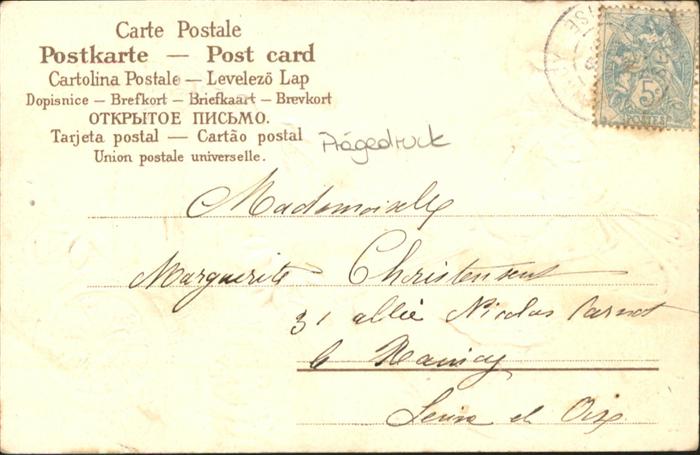 Carte Postale
Postkarte — Post card
Cartolina Postale — Levelező Lap
Dopisnice — Brefkort — Briefkaart — Brevkort
ОТКРЫТОЕ ПИСЬМО.
Tarjeta postal — Cartão postal
Union postale universelle.
Prägedruck
5c
POSTES
OISE
Mademoiselle
Marguerite Christensent
31 allée Nicolas Carnot
le Raincy
Seine et Oise